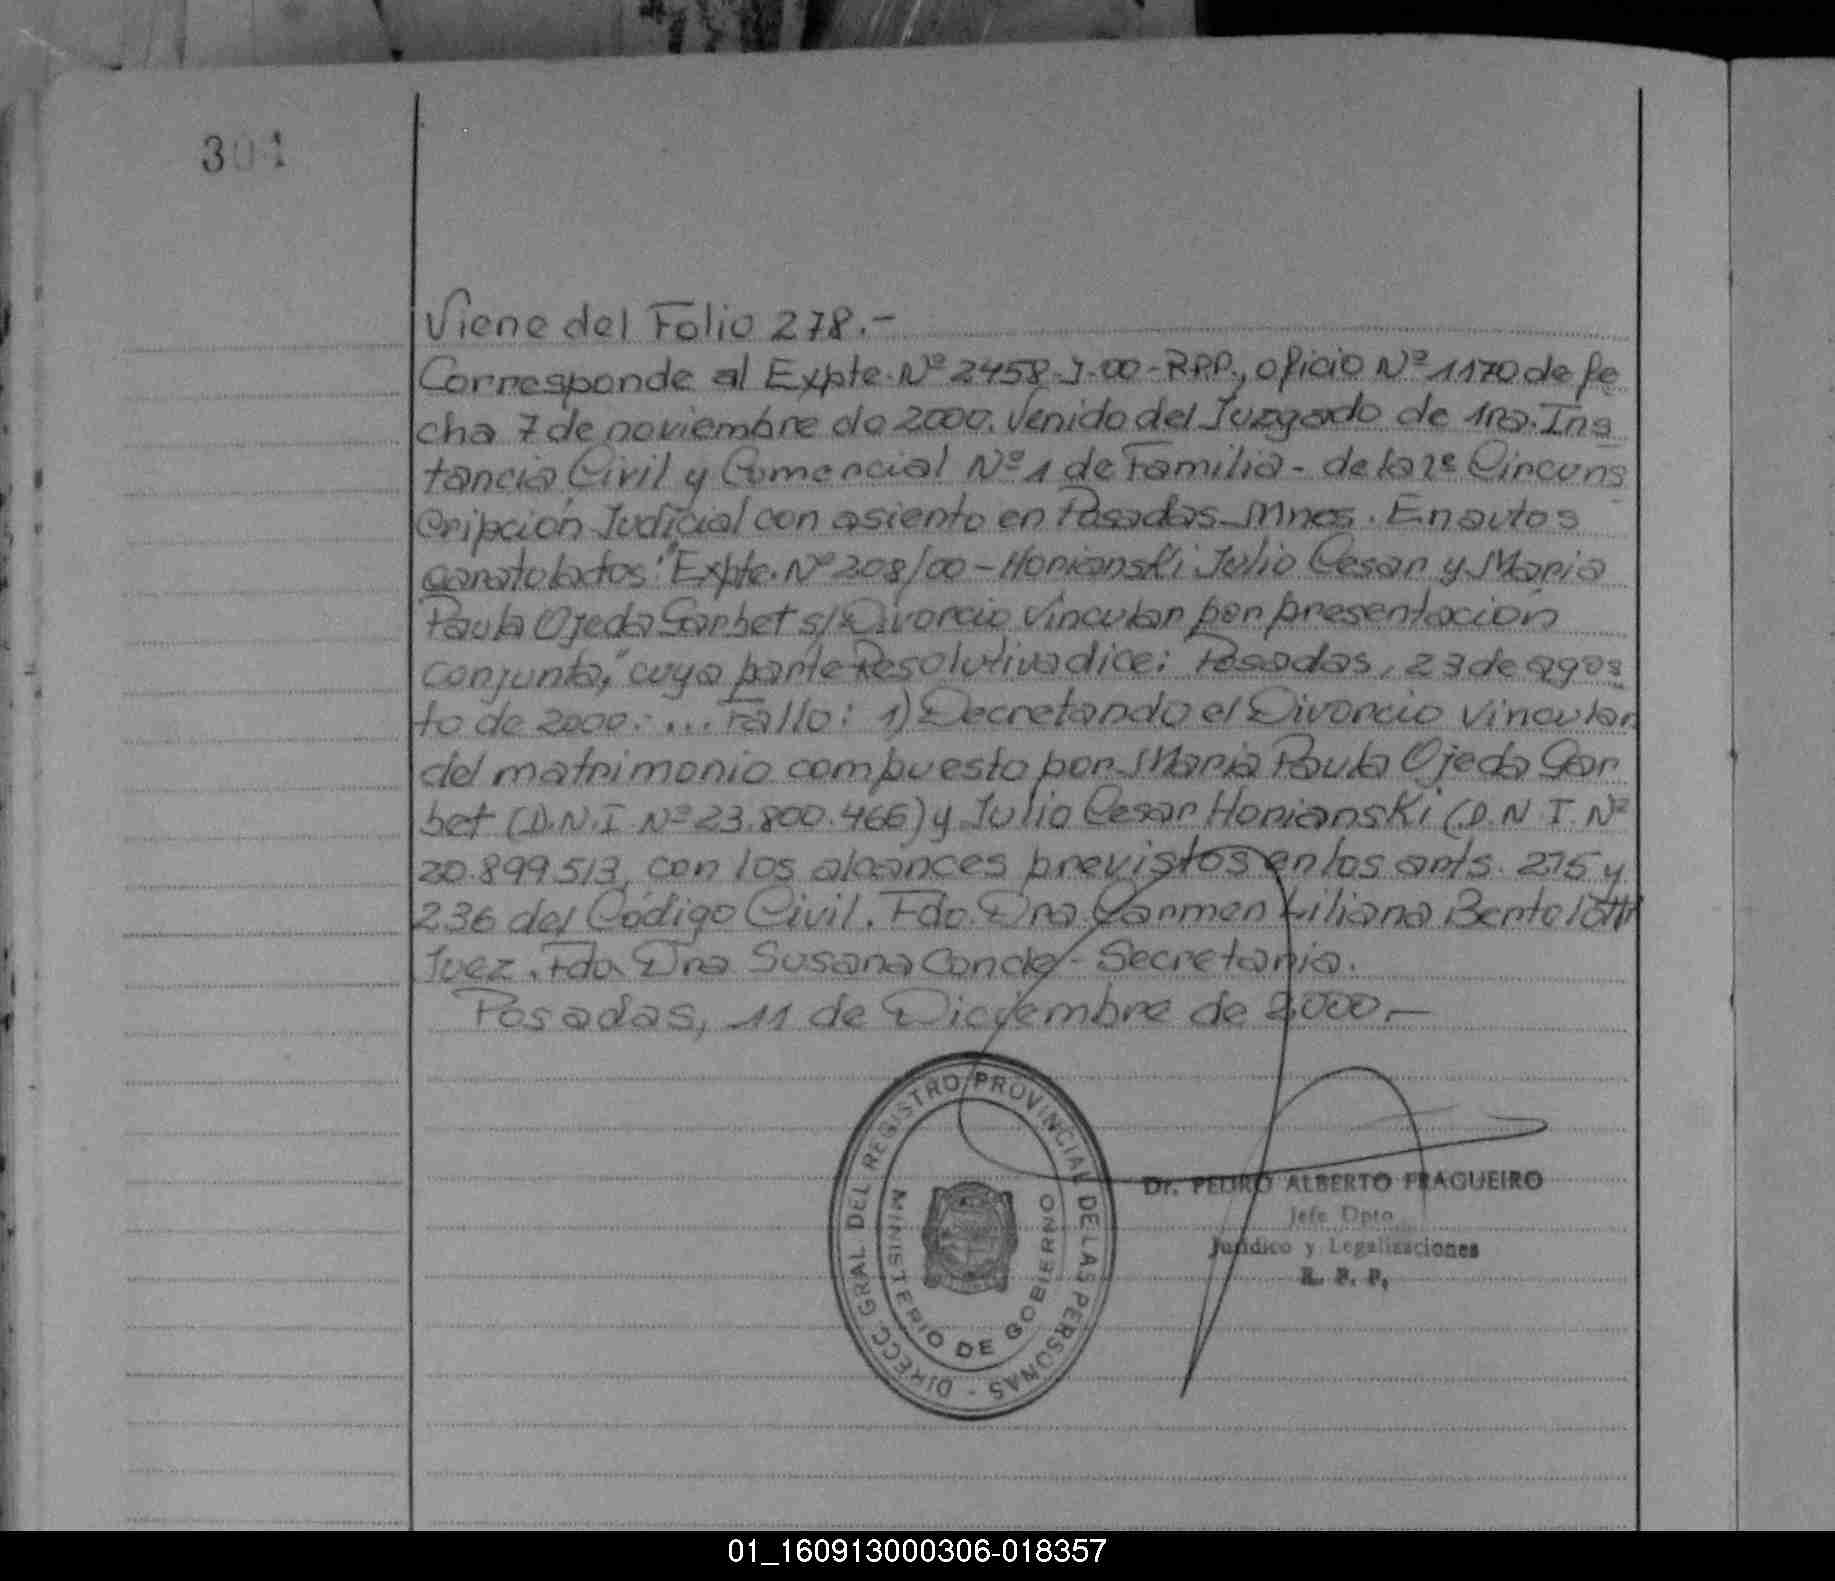 304
Viene del Folio 278.-
Corresponde al Expte. Nº 2458-J-00-R.P.P., oficio Nº 1170 de fe
cha 7 de noviembre de 2000. Venido del Juzgado de 1ra. Ins
tancia Civil y Comercial Nº 1 de Familia - de la 1ª Circuns
cripción Judicial con asiento en Posadas-Mnes. En autos
caratulados: "Expte. Nº 208/00 - Honianski Julio Cesar y Maria
Paula Ojeda Garbet s/Divorcio Vincular por presentación
conjunta," cuya parte Resolutiva dice: Posadas, 23 de agos
to de 2000: ... Fallo: 1) Decretando el Divorcio Vincular
del matrimonio compuesto por Maria Paula Ojeda Gar
bet (D.N.I. Nº 23.800.466) y Julio Cesar Honianski (D.N.I. Nº
20.899.513, con los alcances previstos en los arts. 215 y
236 del Código Civil. Fdo. Dra Carmen Liliana Bertolotti
Juez. Fdo. Dra Susana Conde - Secretaria.
Posadas, 11 de Diciembre de 2000.-
DIRECC. GRAL DEL REGISTRO PROVINCIAL DE LAS PERSONAS -
MINISTERIO DE GOBIERNO
Dr. PEDRO ALBERTO FRAGUEIRO
Jefe Dpto
Jurídico y Legalizaciones
R. P. P.
01_160913000306-018357